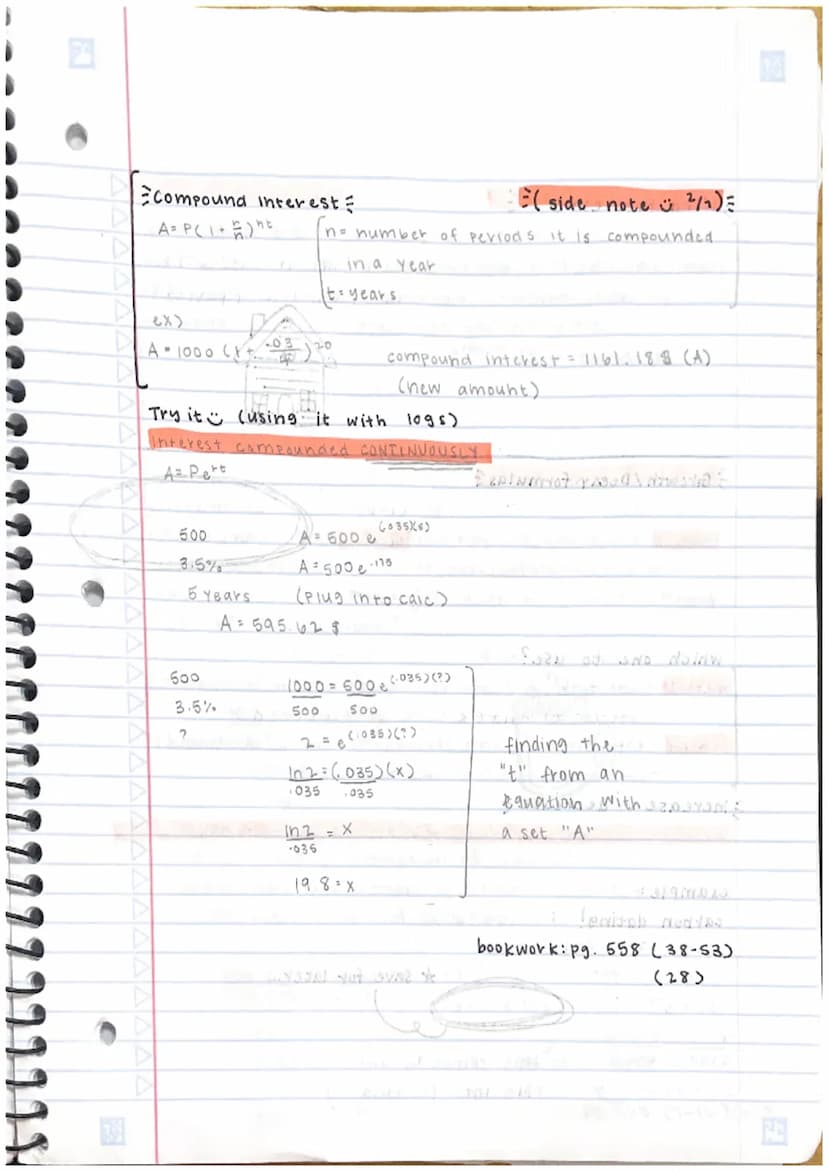 Compound Interest
(side note ü 2/7)
A= P(1+ r/n)^nt
n= number of periods it is compounded
in a year
t=years
ex)
A=1000 (1+ .03/4)^20
compound interest = 1161.18$ (A)
(new amount)
Try it ü (using it with logs)
Interest compounded CONTINUOUSLY
A=Pe^rt
500 A=500e^(.035)(5)
3.5% A=500e^.175
5 years (plug into calc)
A= 595.62 $
500 1000=500e^(.035)(?)
3.5% 500 500
? 2=e^(.035)(?)
ln2=(.035)(x)
.035 .035
ln2 = x
.035
19.8=x
finding the
"t" from an
equation with
a set "A"
bookwork: pg. 558 (38-53)
(28)